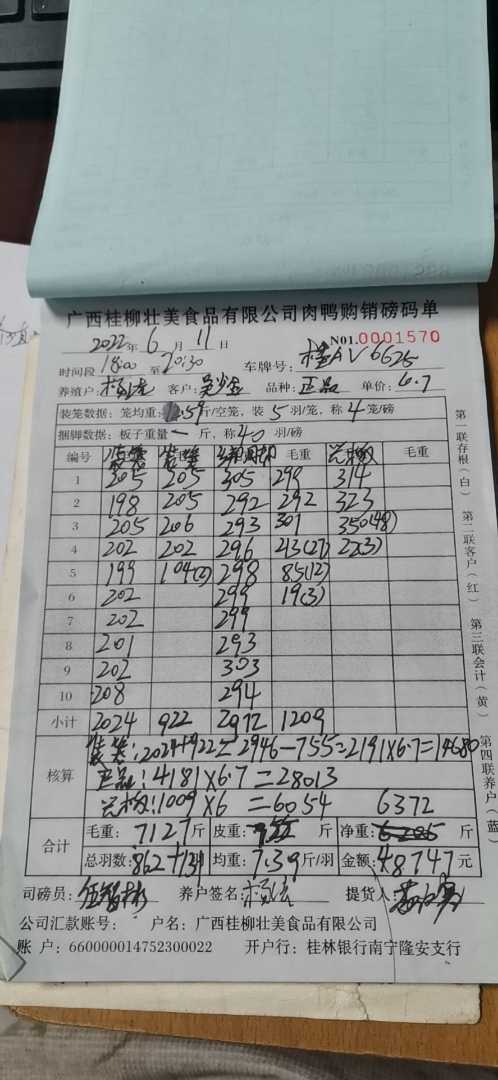 广西桂柳壮美食品有限公司肉鸭购销磅码单
2022年6月11日 NO1.0001570
时间段 18:00至20:30 车牌号: 桂AV6625
养殖户: 客户: 吴少金 品种: 正品 单价: 6.7
装笼数据: 笼均重: 斤/空笼, 装5羽/笼, 称4笼/磅
捆脚数据: 板子重量 一 斤, 称40羽/磅
编号 装笼 装笼 毛重 毛重
1 205 205 305 299 314
2 198 205 292 292 323
3 205 206 293 301 350(48)
4 202 202 296 43(27) 22(3)
5 199 104 298 85(12)
6 202 299 19(3)
7 202 299
8 201 293
9 202 303
10 208 294
小计 2024 922 2972 1209
核算
装笼:2024+922=2946-755=2191×6.7=14680
正品:4181×6.7=28013
1009×6=6054 6372
合计 毛重: 7127斤 皮重: 斤 净重: 斤
总羽数: 862+134 均重: 7.39斤/羽 金额: 48747元
司磅员: 养户签名: 提货人:
公司汇款账号: 户名: 广西桂柳壮美食品有限公司
账户: 660000014752300022 开户行: 桂林银行南宁隆安支行
第一联存根(白) 第二联客户(红) 第三联会计(黄) 第四联养户(蓝)